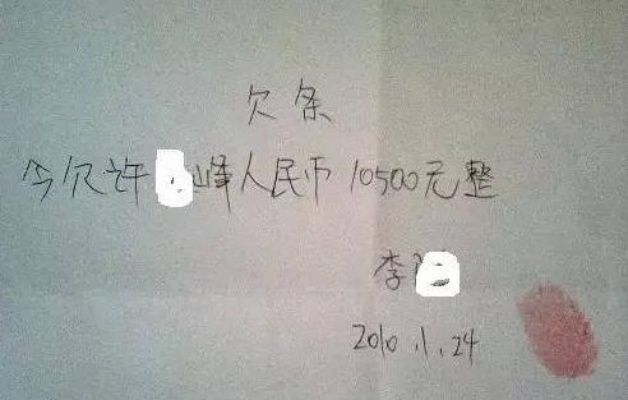 欠条
今欠许峰人民币10500元整
李
2010.1.24